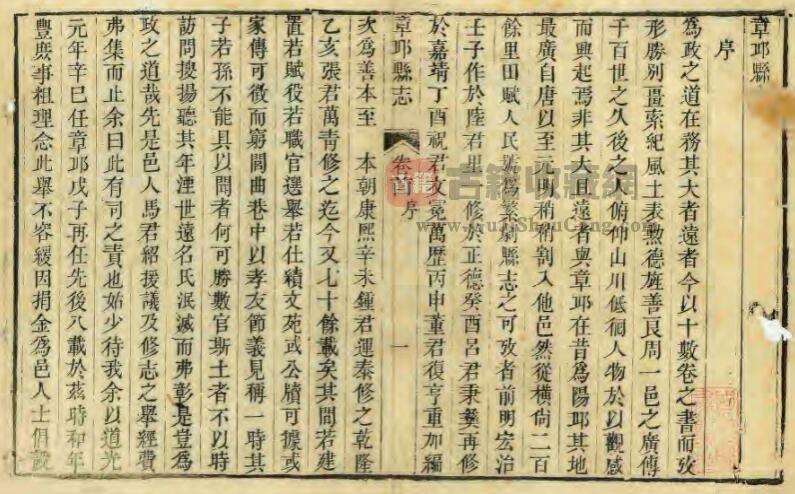 章邱縣
序
為政之道在務其大者遠者今以十數卷之書而攷
形勝別畺索紀風土表勲德旌善良周一邑之廣傳
千百世之久後之人俯仰山川低徊人物於以觀感
而興起焉非其大且遠者與章邱在昔為陽邱其地
最廣自唐以至元明稍稍割入他邑然從橫尚二百
餘里田賦人民號為繁劇縣志之可攷者前明宏治
壬子作於陸君里 修於正德癸酉呂君秉彝再修
於嘉靖丁酉祝君文冕萬歷丙申董君復亨重加編
章邱縣志 卷首 序 一
次為善本至 本朝康熙辛未鍾君運泰修之乾隆
乙亥張君萬青修之迄今又七十餘載矣其間若建
置若賦役若職官選舉若仕績文苑或公牘可據或
家傳可徵而窮閭曲巷中以孝友節義見稱一時其
子若孫不能具以聞者何可勝數官斯土者不以時
訪問搜揚聽其年湮世遠名氏泯滅而弗彰是豈為
政之道哉先是邑人馬君紹援議及修志之舉經費
弗集而止余曰此有司之責也始少待我余以道光
元年辛巳任章邱戊子再任先後八載於茲時和年
豐庶事粗理念此舉不容緩因捐金為邑人士倡設
古籍收藏网
www.GuJiShouCang.com